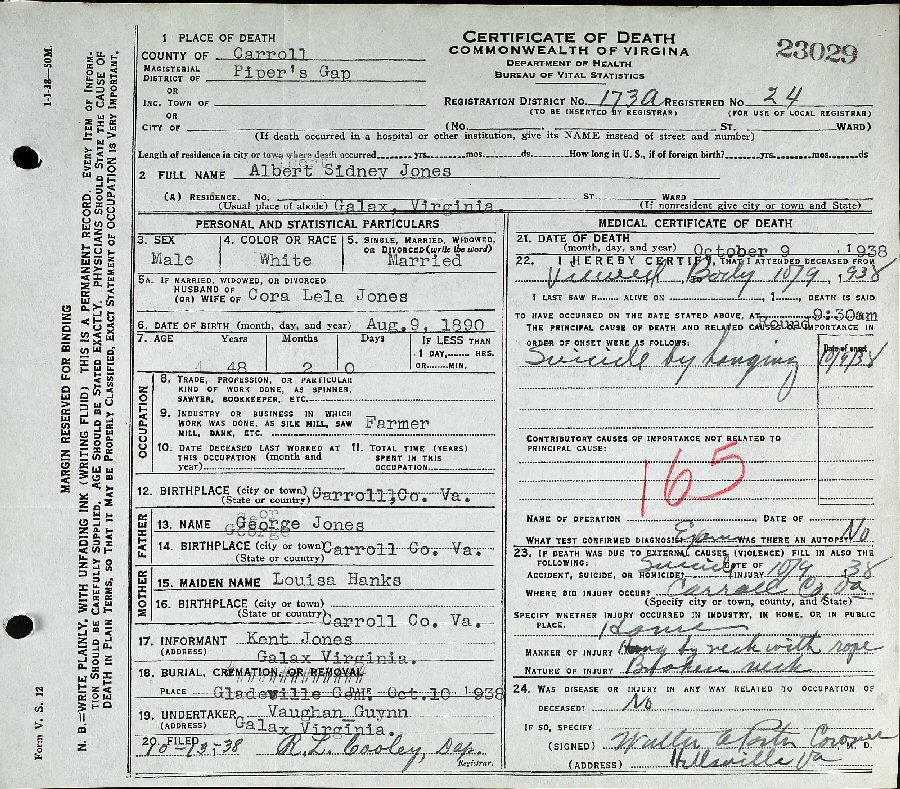 1 PLACE OF DEATH
COUNTY OF Carroll
MAGISTERIAL DISTRICT OF Piper's Gap
OR
INC. TOWN OF
OR
CITY OF
CERTIFICATE OF DEATH
COMMONWEALTH OF VIRGINIA
DEPARTMENT OF HEALTH
BUREAU OF VITAL STATISTICS
23029
REGISTRATION DISTRICT NO. 173A REGISTERED NO. 24
(TO BE INSERTED BY REGISTRAR) (FOR USE OF LOCAL REGISTRAR)
(No. ST. WARD)
(If death occurred in a hospital or other institution, give its NAME instead of street and number)
Length of residence in city or town where death occurred yrs. mos. ds. How long in U. S., if of foreign birth? yrs. mos. ds
2 FULL NAME Albert Sidney Jones
(A) RESIDENCE. No. ST. WARD
(Usual place of abode) Galax, Virginia (If nonresident give city or town and State)
PERSONAL AND STATISTICAL PARTICULARS
3. SEX Male
4. COLOR OR RACE White
5. SINGLE, MARRIED, WIDOWED, OR DIVORCED (write the word) Married
5A. IF MARRIED, WIDOWED, OR DIVORCED
HUSBAND OF
(OR) WIFE OF Cora Lela Jones
6. DATE OF BIRTH (month, day, and year) Aug. 9, 1890
7. AGE Years Months Days IF LESS THAN
1 DAY, HRS.
48 2 0 OR MIN.
OCCUPATION
8. TRADE, PROFESSION, OR PARTICULAR
KIND OF WORK DONE, AS SPINNER,
SAWYER, BOOKKEEPER, ETC.
9. INDUSTRY OR BUSINESS IN WHICH
WORK WAS DONE, AS SILK MILL, SAW
MILL, BANK, ETC. Farmer
10. DATE DECEASED LAST WORKED AT
THIS OCCUPATION (month and
year)
11. TOTAL TIME (YEARS)
SPENT IN THIS
OCCUPATION
12. BIRTHPLACE (city or town) Carroll, Co. Va.
(State or country)
FATHER
or
13. NAME George Jones
George
14. BIRTHPLACE (city or town) Carroll Co. Va.
(State or country)
MOTHER
15. MAIDEN NAME Louisa Hanks
16. BIRTHPLACE (city or town)
(State or country) Carroll Co. Va.
17. INFORMANT Kent Jones
(ADDRESS) Galax Virginia.
18. BURIAL, CREMATION, OR REMOVAL
PLACE Gladeville Cem Oct. 10 1938
19. UNDERTAKER Vaughan Guynn
(ADDRESS) Galax Virginia.
20. FILED 10-13-38 R. L. Cooley, Dep.
Registrar.
MEDICAL CERTIFICATE OF DEATH
21. DATE OF DEATH
(month, day, and year) October 9, 1938
22. I HEREBY CERTIFY, THAT I ATTENDED DECEASED FROM
Viewed Body 10/9, 1938
I LAST SAW H ALIVE ON , 1 , DEATH IS SAID
TO HAVE OCCURRED ON THE DATE STATED ABOVE, AT 9:30am
Found
THE PRINCIPAL CAUSE OF DEATH AND RELATED CAUSES OF IMPORTANCE IN
ORDER OF ONSET WERE AS FOLLOWS: Date of onset
Suicide by hanging 10/9/38
CONTRIBUTORY CAUSES OF IMPORTANCE NOT RELATED TO
PRINCIPAL CAUSE:
165
NAME OF OPERATION DATE OF
WHAT TEST CONFIRMED DIAGNOSIS? Exam WAS THERE AN AUTOPSY? No
23. IF DEATH WAS DUE TO EXTERNAL CAUSES (VIOLENCE) FILL IN ALSO THE
FOLLOWING:
ACCIDENT, SUICIDE, OR HOMICIDE? Suicide DATE OF INJURY 10/9 38
WHERE DID INJURY OCCUR? Carroll Co. Va
(Specify city or town, county, and State)
SPECIFY WHETHER INJURY OCCURRED IN INDUSTRY, IN HOME, OR IN PUBLIC
PLACE. Home
MANNER OF INJURY Hung by neck with rope
NATURE OF INJURY Broken neck
24. WAS DISEASE OR INJURY IN ANY WAY RELATED TO OCCUPATION OF
DECEASED? No
IF SO, SPECIFY
(SIGNED) Walter Coroner M. D.
(ADDRESS) Hillsville Va
1-1-38—50M.
MARGIN RESERVED FOR BINDING
N. B.—WRITE PLAINLY, WITH UNFADING INK (WRITING FLUID) THIS IS A PERMANENT RECORD. EVERY ITEM OF INFORM-
TION SHOULD BE CAREFULLY SUPPLIED. AGE SHOULD BE STATED EXACTLY. PHYSICIANS SHOULD STATE THE CAUSE OF
DEATH IN PLAIN TERMS, SO THAT IT MAY BE PROPERLY CLASSIFIED. EXACT STATEMENT OF OCCUPATION IS VERY IMPORTANT.
Form V. S. 12